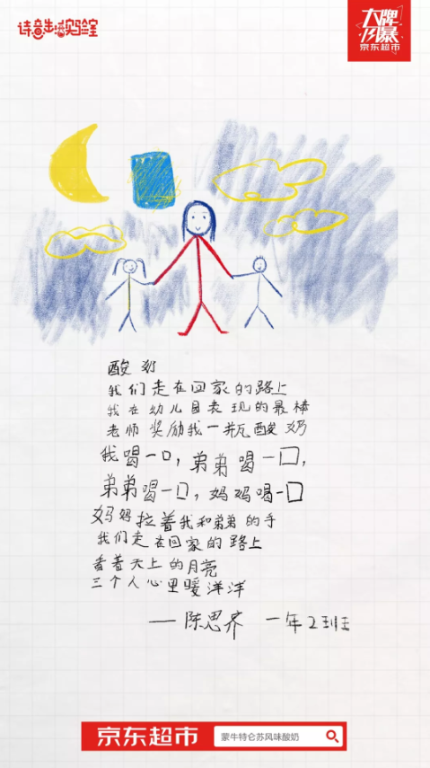 诗意生活实验室
大牌闪暴
京东超市
酸奶
我们走在回家的路上
我在幼儿园表现的最棒
老师奖励我一瓶酸奶
我喝一口，弟弟喝一口，
弟弟喝一口，妈妈喝一口
妈妈拉着我和弟弟的手
我们走在回家的路上
看着天上的月亮
三个人心里暖洋洋
——陈思齐 一年2班
京东超市 蒙牛特仑苏风味酸奶